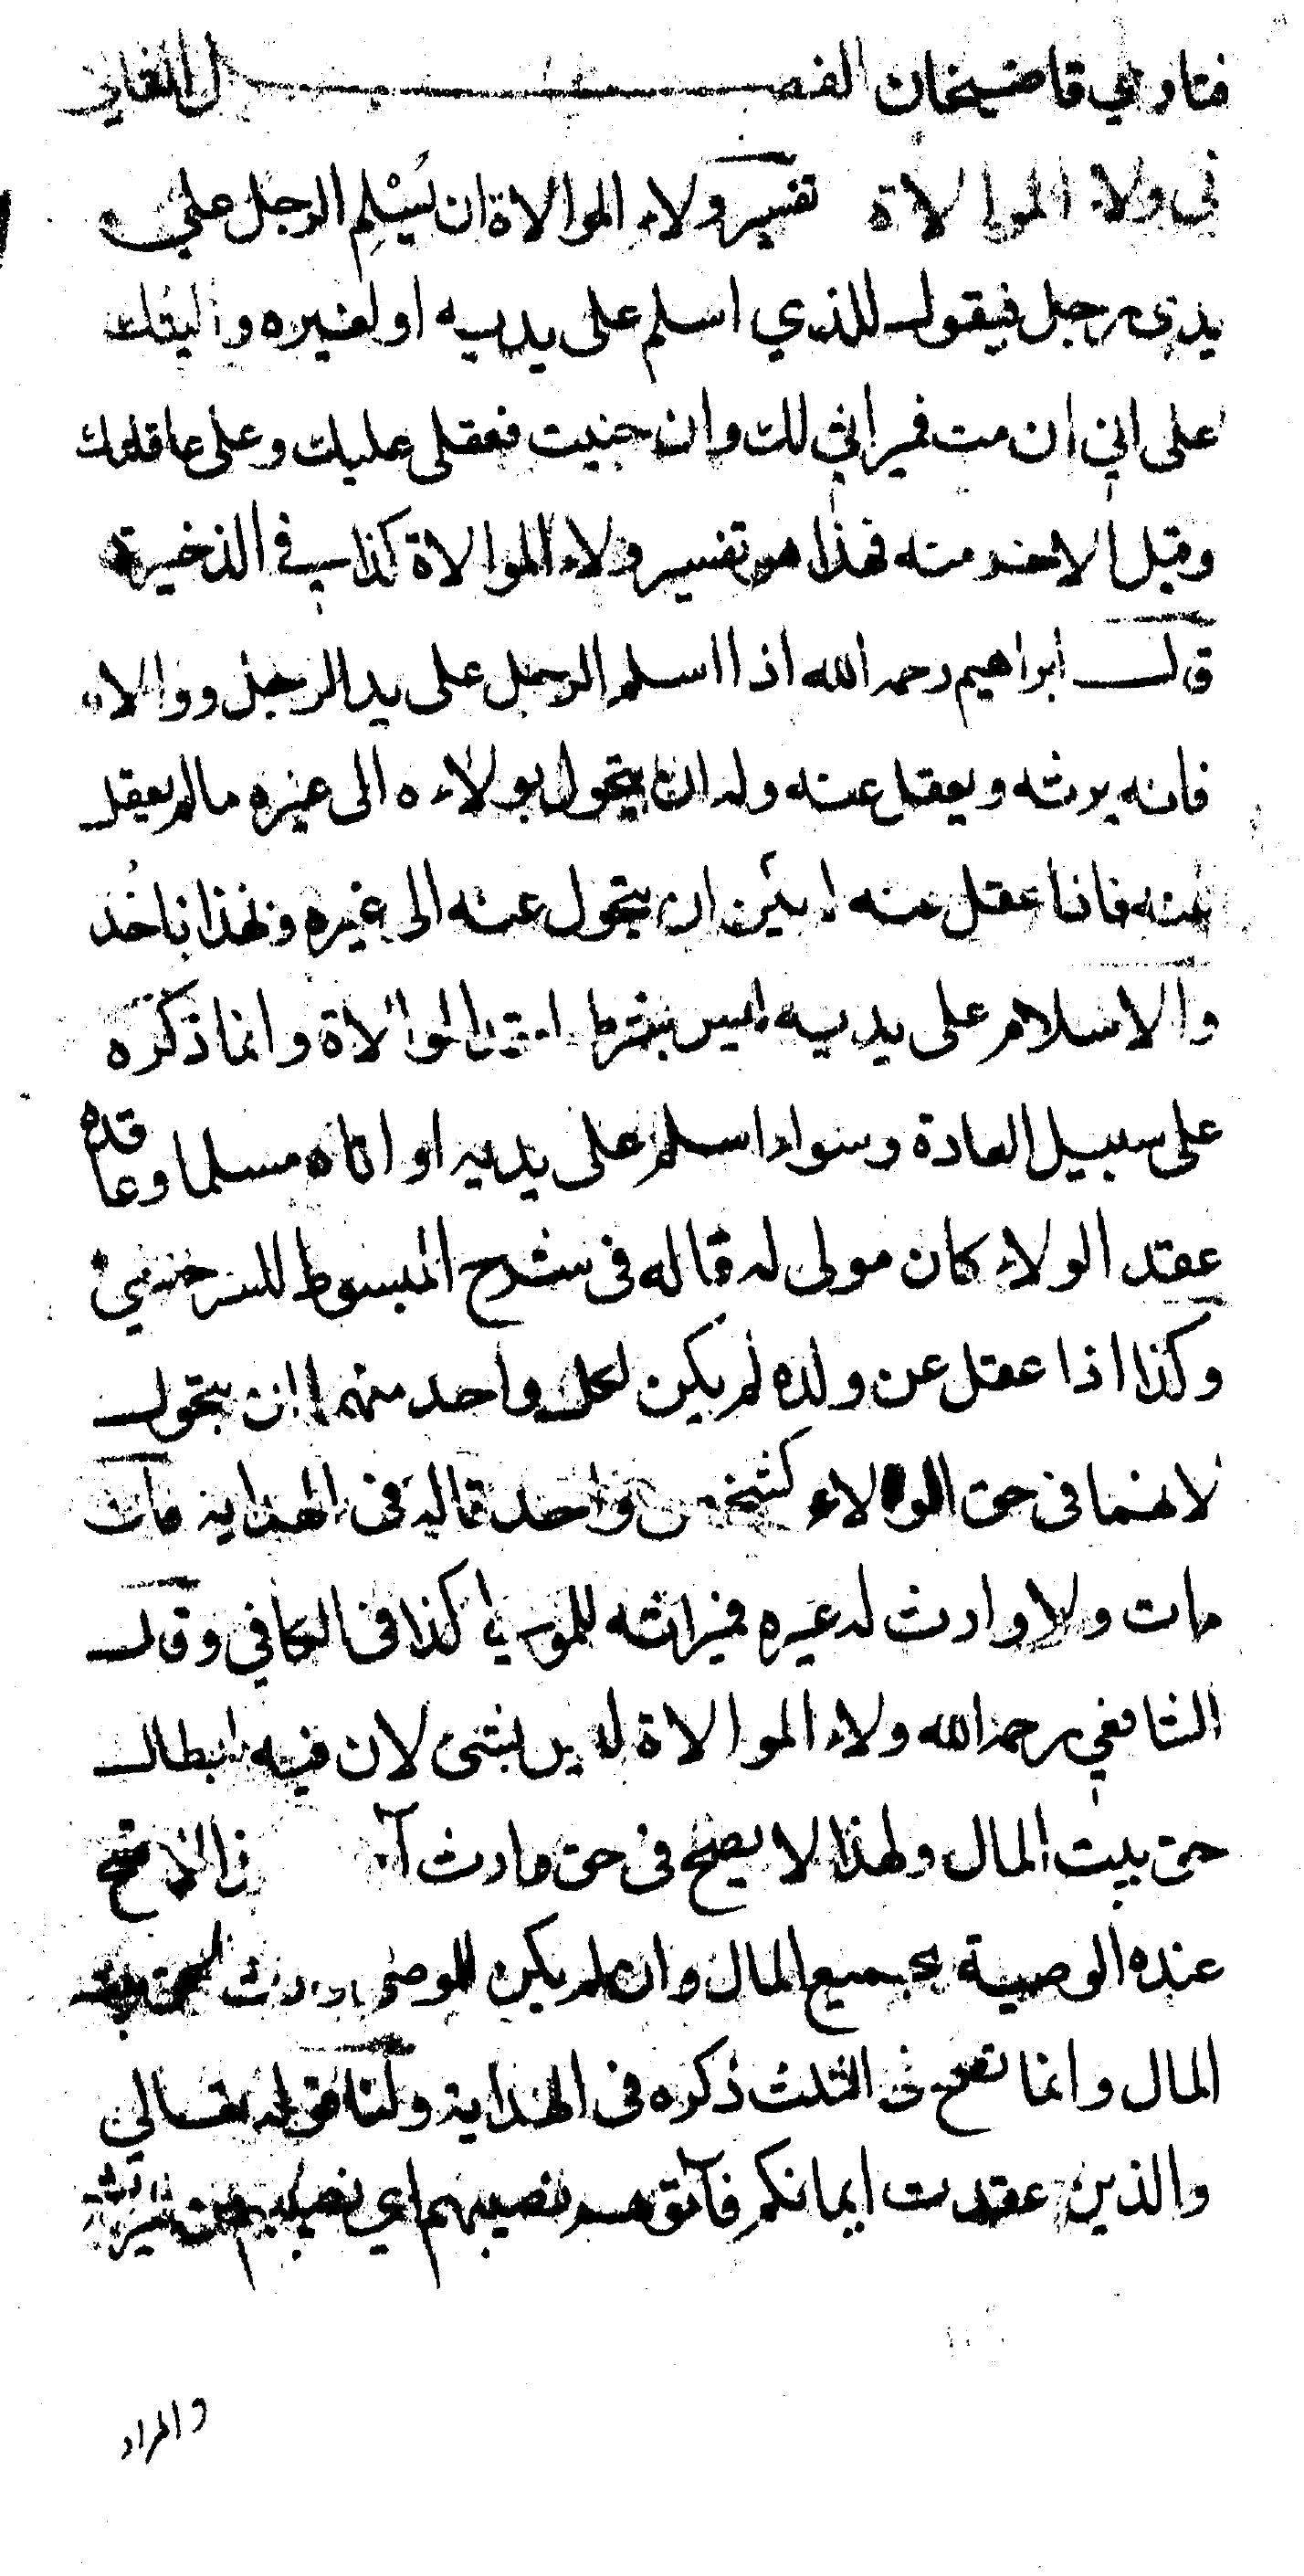 فتاوي قاضيخان الفصـــــــل الثاني
في ولاء الموالاة تفسير ولاء الموالاة ان يُسْلِم الرجل على
يدي رجل فيقول للذي اسلم على يديه او لغيره واليتك
على اني ان مت فميراثي لك وان جنيت فعقلي عليك وعلى عاقلتك
وقبل الاخر منه فهذا هو تفسير ولاء الموالاة كذا في الذخيرة
قال ابراهيم رحمه الله اذا اسلم الرجل على يد الرجل ووالاه
فانه يرثه ويعقل عنه وله ان يتحول بولاءه الى غيره ما لم يعقل
عنه فاذا عقل عنه لم يكن ان يتحول عنه الى غيره وبهذا ناخُذ
والاسلام على يديه ليس بشرط الموالاة وانما ذكره
على سبيل العادة وسواء اسلم على يديه او اتاه مسلما وعاقده
عقد الولاء كان مولى له قاله في شرح المبسوط للسرخسي
وكذا اذا عقل عن ولده لم يكن لكل واحد منهما ان يتحول
لانهما في حق الولاء كشخص واحد قاله في الهداية مات
مات ولا وارث له غيره فميراثه للمولى كذا في الكافي وقال
الشافعي رحمه الله ولاء الموالاة ليس بشئ لان فيه ابطال
حق بيت المال ولهذا لا يصح في حق وارث آ لا تصح
عنده الوصية بجميع المال وان لم يكن للموصي وارث لحق بيت
المال وانما تصح في الثلث ذكره في الهداية ولنا قوله تعالى
والذين عقدت ايمانكم فآتوهم نصيبهم اي نصيبهم من
والمراد